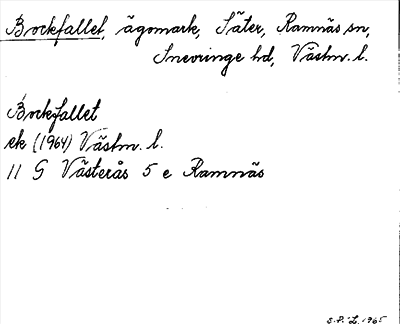 Bockfallet, ägomark, Säter, Ramnäs sn,
Snevringe hd, Västm. l.
Bockfallet
ek (1964) Västm. l.
11 G Västerås 5 e Ramnäs
S.P.L. 1965